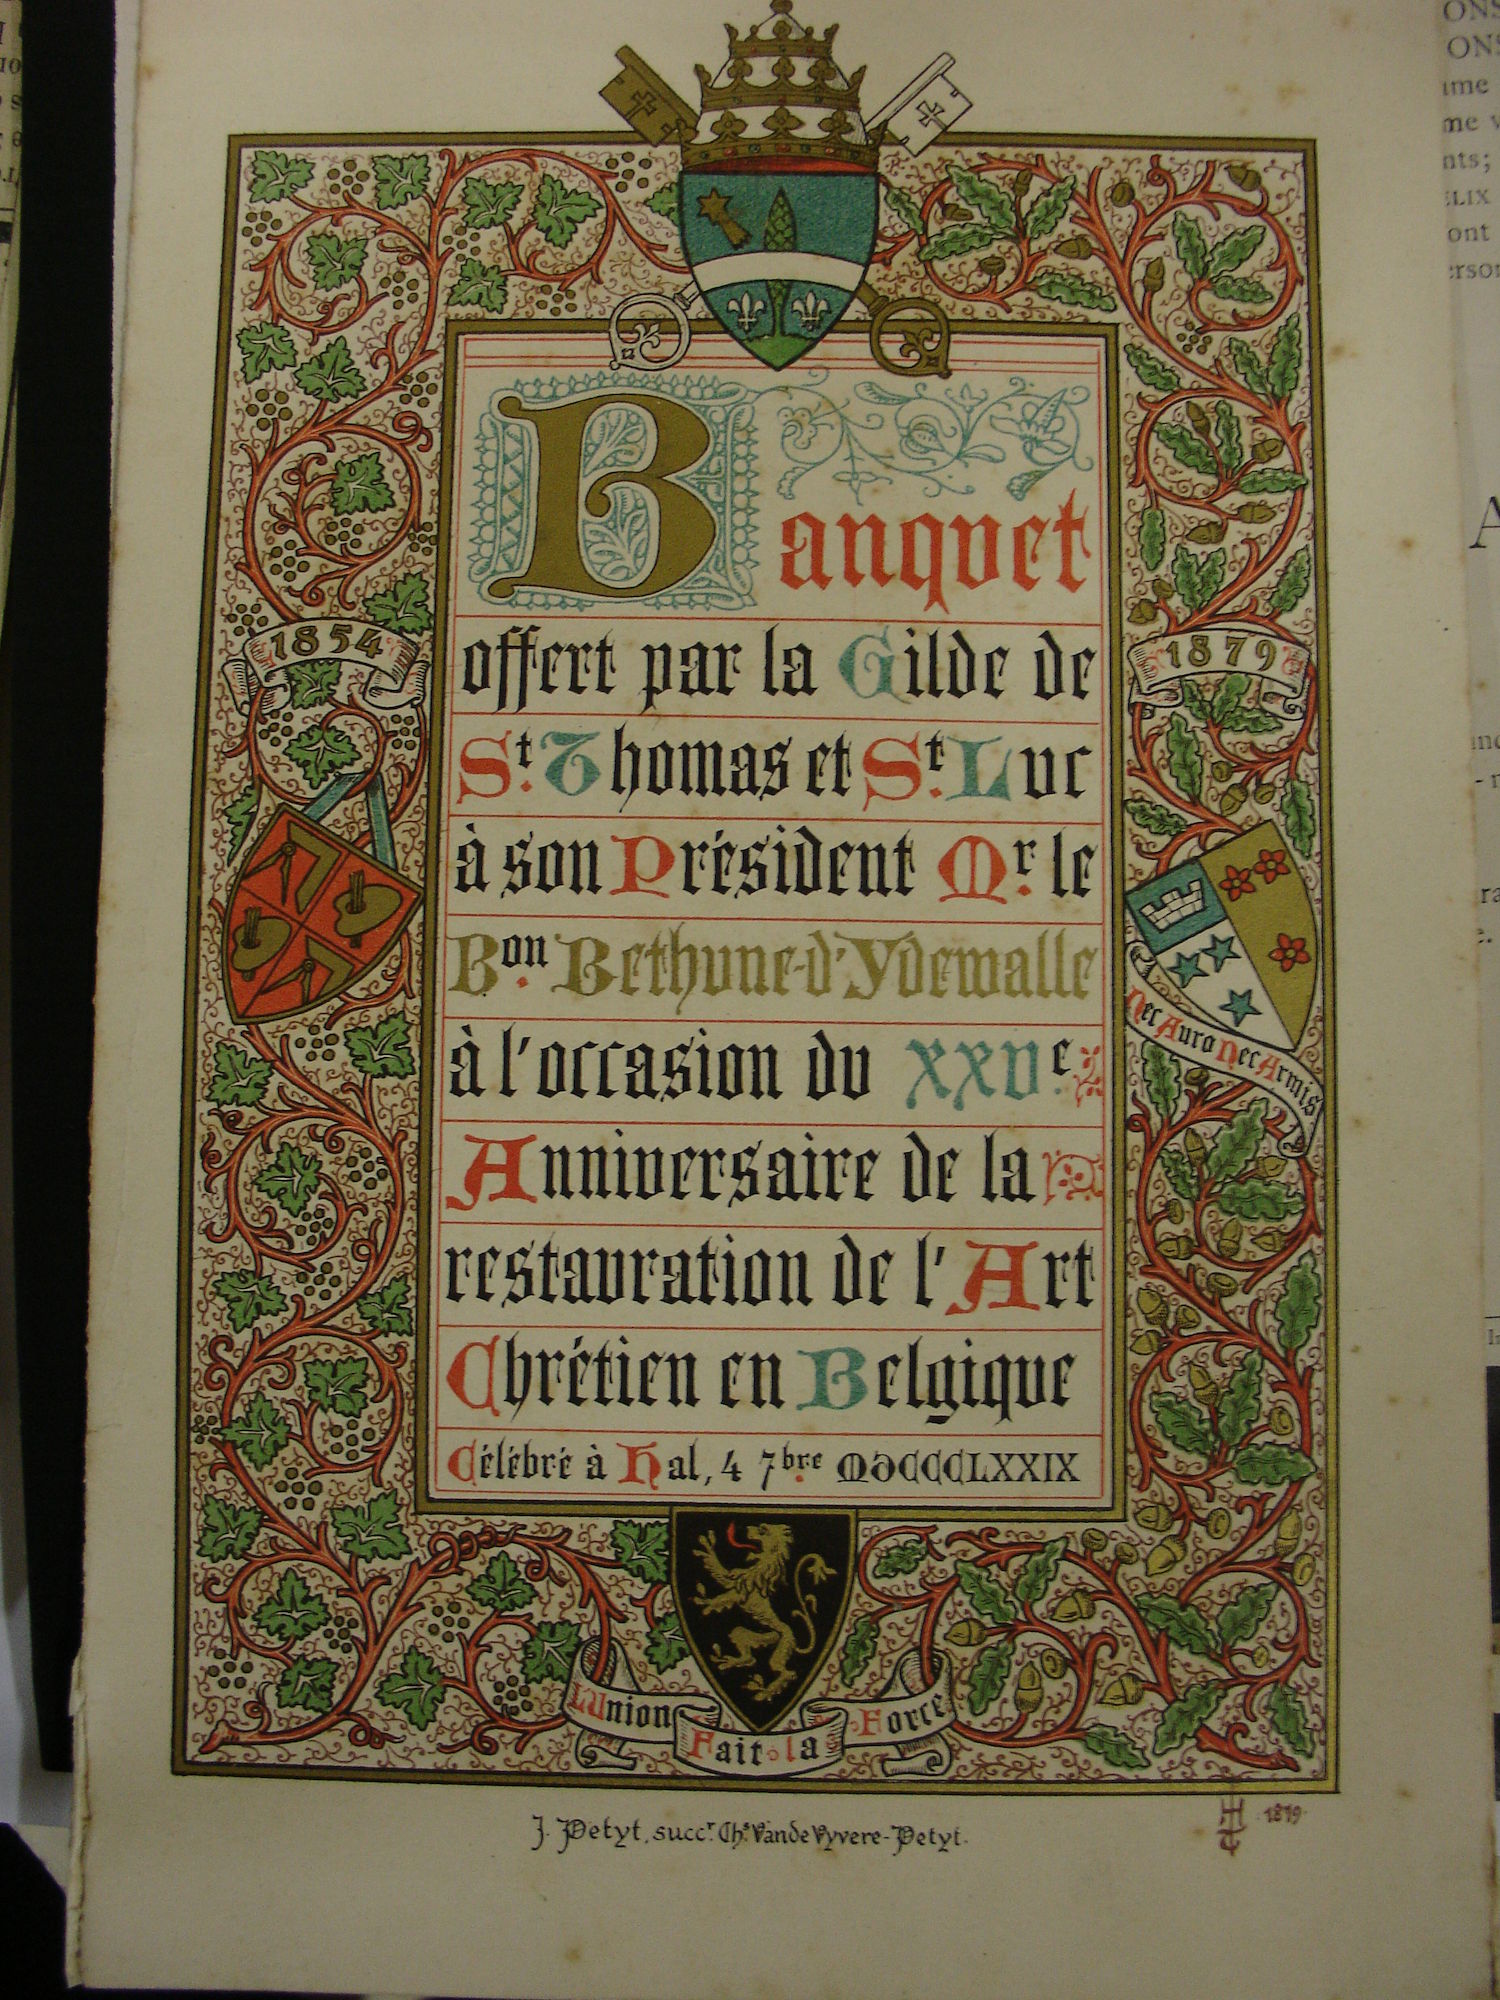 Banquet
offert par la Gilde de
St. Thomas et St. Luc
à son Président Mr. le
Bon. Bethune-d'Ydewalle
à l'occasion du XXVe.
Anniversaire de la
restauration de l'Art
Chrétien en Belgique
Célébré à Hal, 4 7bre MDCCCLXXIX
1854
1879
Nec Auro Nec Armis
L'Union
Fait la
Force
J. Petyt, succr. Chs. Vande Vyvere-Petyt.
1879
ONS
ume
me v
nts;
ELIX
ont